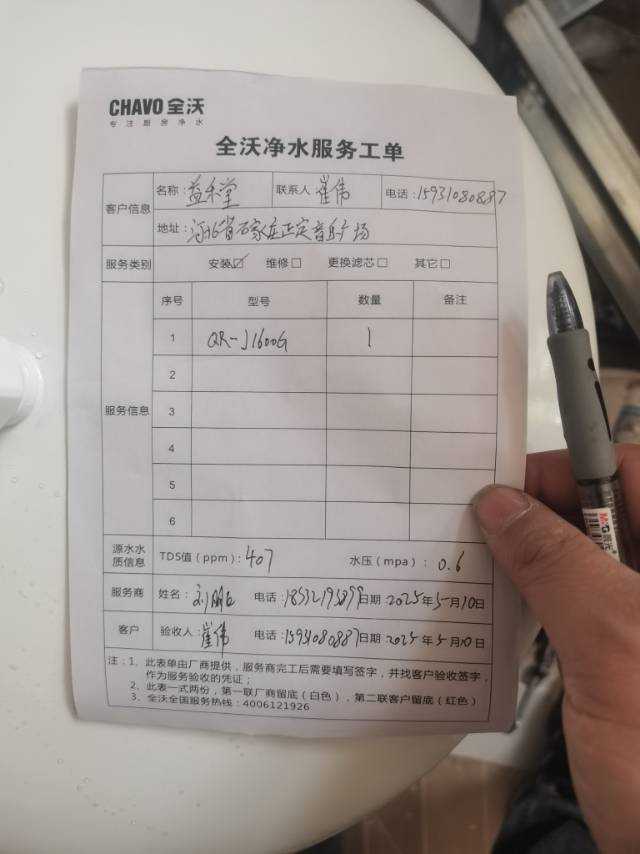 CHAVO 全沃
专注厨房净水
全沃净水服务工单
客户信息 名称：益禾堂 联系人 崔伟 电话：15931080887
地址：河北省石家庄正定音乐广场
服务类别 安装☑ 维修□ 更换滤芯□ 其它□
服务信息
序号 型号 数量 备注
1 QR-J1600G 1
2
3
4
5
6
源水水质信息 TDS值（ppm）：407 水压（mpa）：0.6
服务商 姓名： 电话：18532193899 日期 2025年5月10日
客户 验收人：崔伟 电话：15931080887 日期 2025年5月10日
注：1、此表单由厂商提供，服务商完工后需要填写签字，并找客户验收签字，
作为服务验收的凭证；
2、此表一式两份，第一联厂商留底（白色），第二联客户留底（红色）
3、全沃全国服务热线：4006121926
M&G 晨光